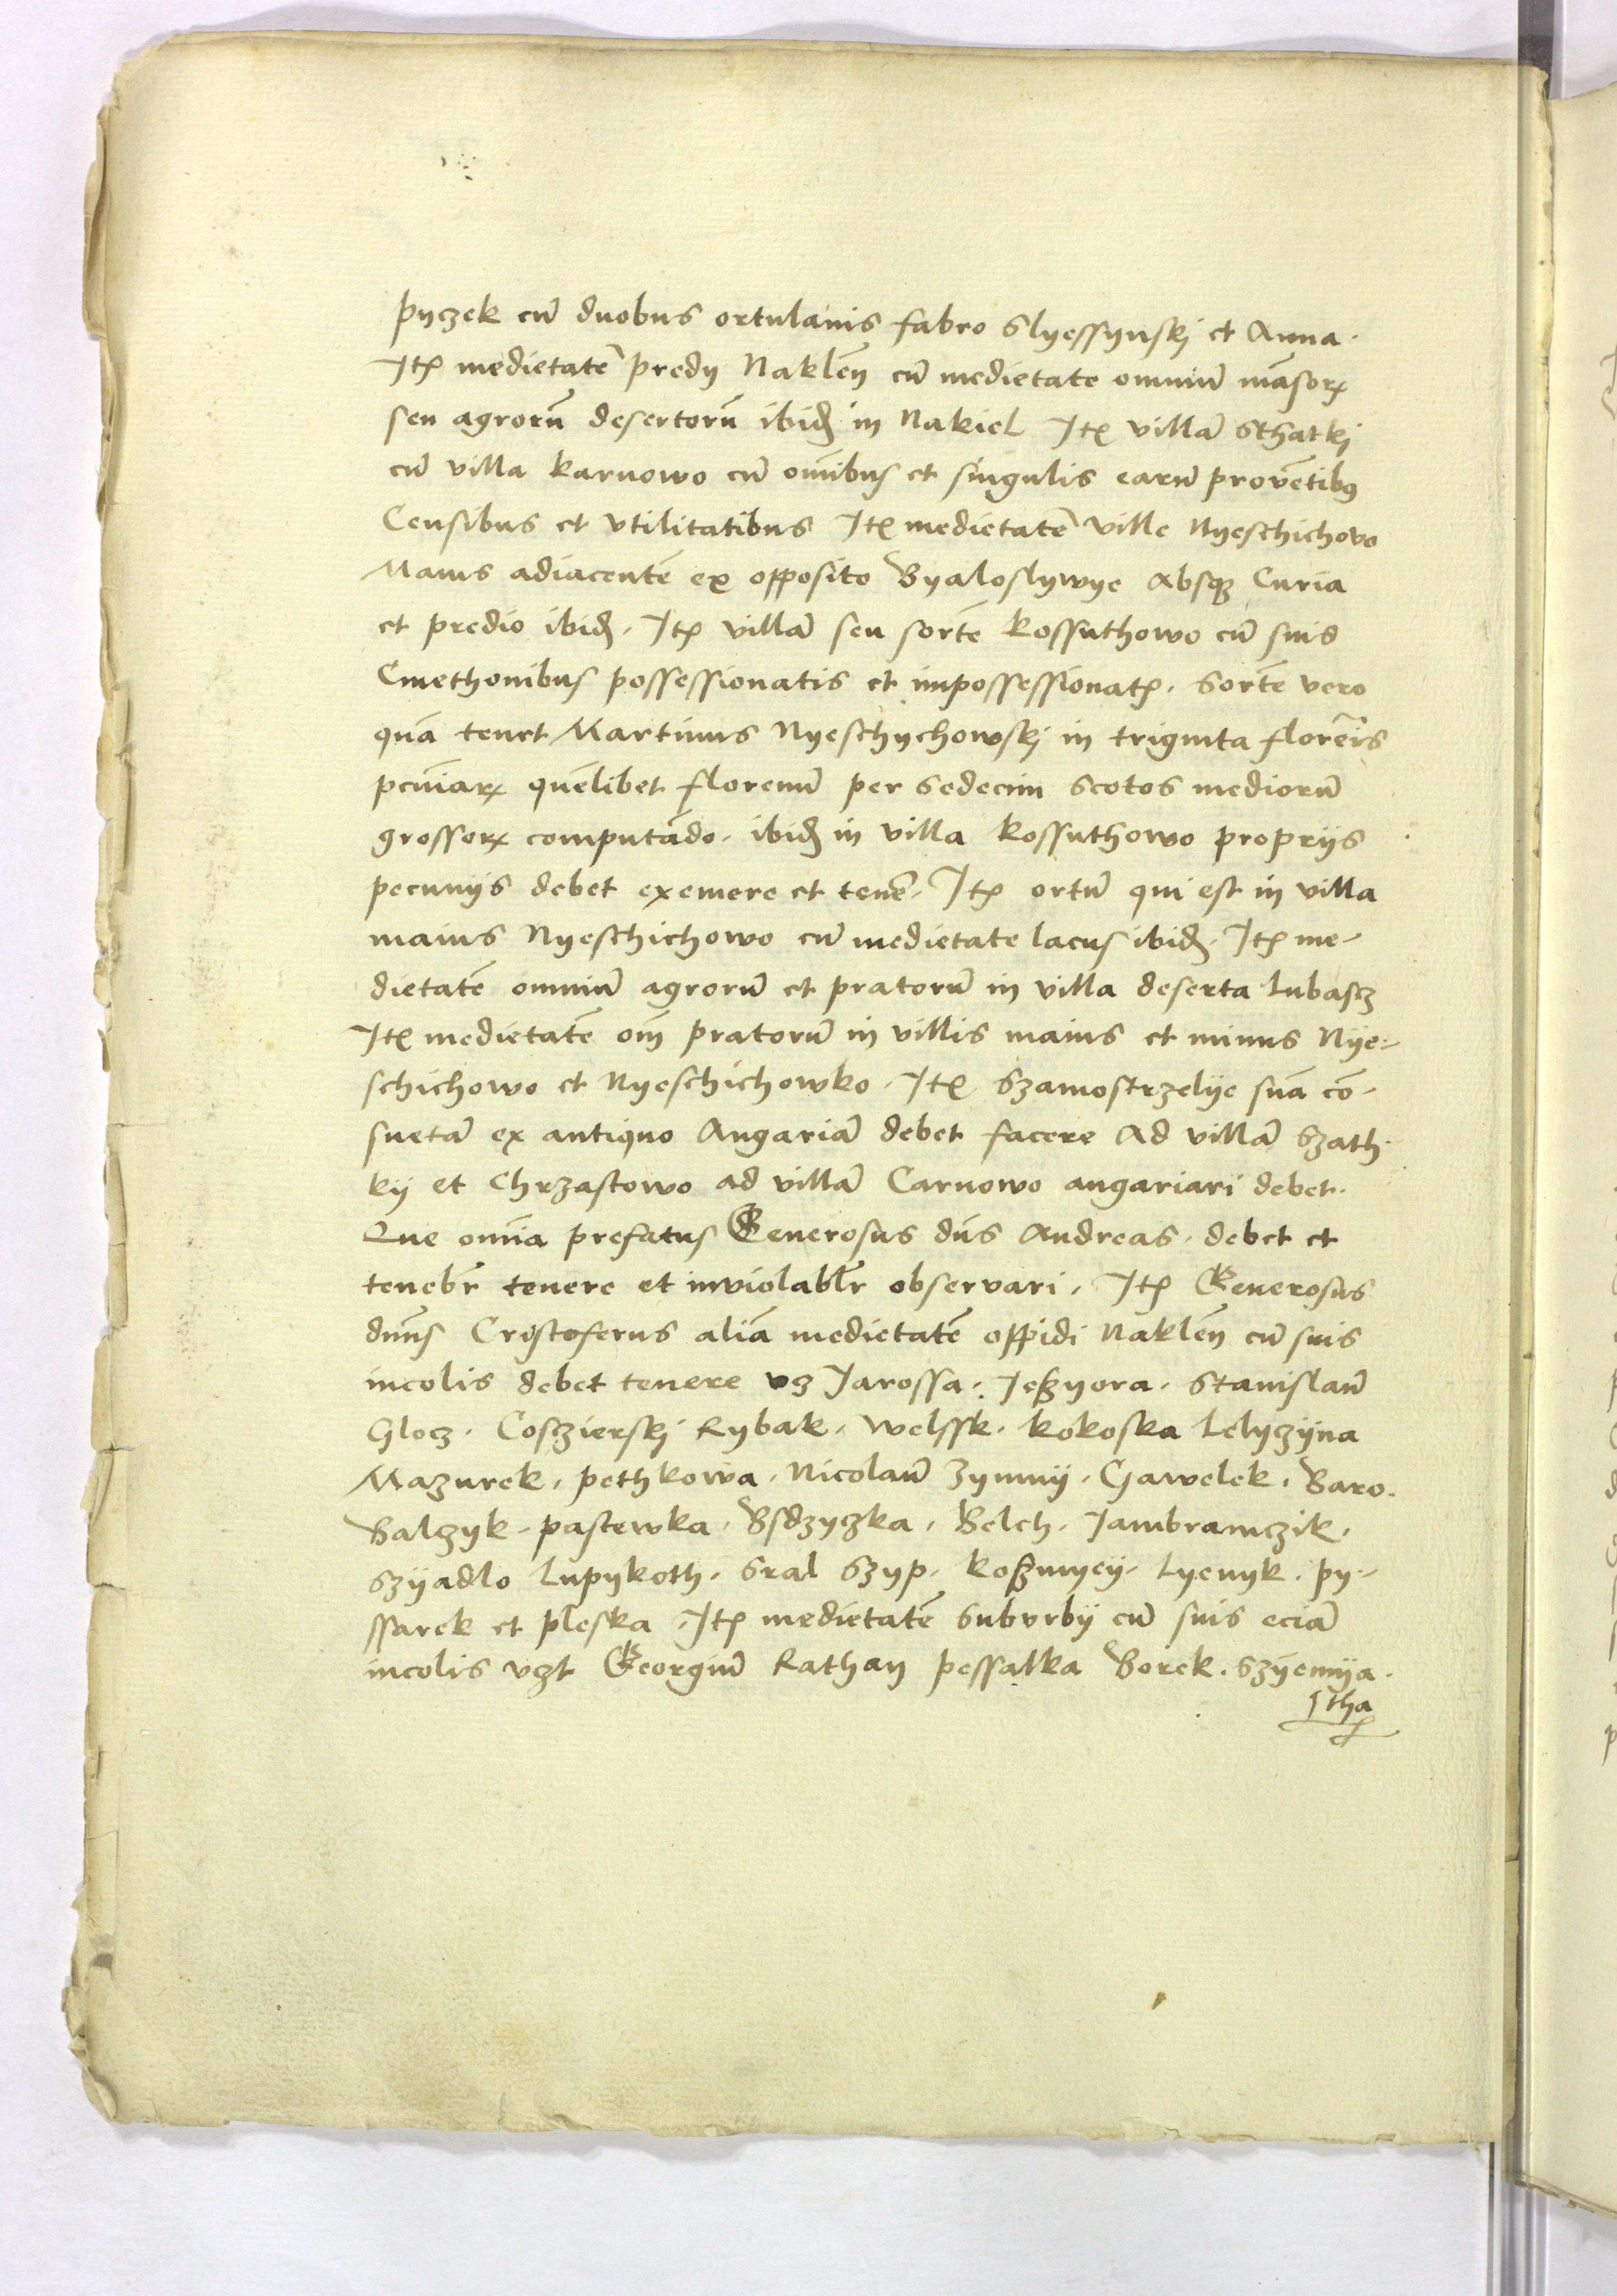 pyczek cū duobus ortulanis fabro Slyessynskj et Anna ·
Itē medietatē predy Naklēn cū medietate omniū māsorꝝ
seu agrorū desertorū ibidꝫ in Nakiel Itē villā Sthatkj
cū villa karnowo cū om̄ibus et singulis earū provētibꝯ
Censibus et vtilitatibus Itē medietatē ville Nyeschichowo
Maius adiacentē ex opposito Byaloslywye Absqꝫ Curia
et predio ibidꝫ · Itē villā seu sortē kossuthowo cū suis
Cmethonibus possessionatis et impossessionatꝭ · Sortē vero
quā tenet Martinus Nyeschychowskj in triginta florēis
pecn̄iarꝝ quēlibet florenū per sedecim scotos mediorū
grossorꝝ computādo · ibidꝫ in villa kossuthowo proprijs
pecunijs debet exemere et tenē · Itē ortū qui est in villa
maius Nyeschichowo cū medietate lacus ibidꝫ · Itē me-
dietatē omniū agrorū et pratorū in villa deserta Lubascz
Itē medietatē om̄ pratorū in villis maius et minus Nÿe-
schichowo et Nyeschichowko · Itē Szamostrzelÿe suā cō-
suetā ex antiquo Angariā debet facere Ad villā Szath-
kÿ et Chrzastowo ad villā Carnowo angariari debet ·
Que om̄ia prefatus Generosus dn̄s Andreas · debet et
tenebr̄ tenere et inviolablr̄ observari · Itē Generosus
dnn̄s Cristoferus aliā medietatē oppidi Naklēn cū suis
incolis debet tenere vꝫ Jarossa · Jeßyora · Stanislaū
Glocz · Cosczierskj Rybak · Welssk · kokoska Lelyczÿna
Mazurek · pethkowa · Nicolaū Zymnÿ · Gawelek · Baro ·
Balczyk · pastewka · Bsdzyczka · Belch · Jambramczik ·
Szÿadlo Lupykoth · Sral Szyp · koßmyeÿ · Lyenyk · py-
ssarek et pleska · Itē medietatē Suburbÿ cū suis eciā
incolis vꝫt Georgiū Rathaÿ pessalka Borek · Szÿemÿa ·
stha